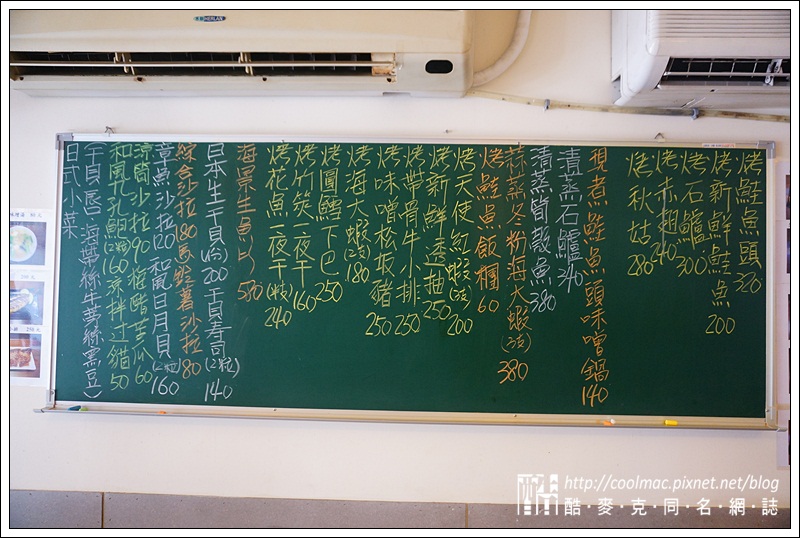 HERLAN
烤鮭魚頭 320
烤新鮮鮭魚 200
烤石鱸 300
烤赤翅 240
烤秋姑 280
現煮鮭魚頭味噌鍋 140
清蒸石鱸 240
清蒸筒殼魚 380
蒜蒸冬粉海大蝦(3支) 380
烤鮭魚飯糰 60
烤天使紅蝦(3支) 200
烤新鮮透抽 250
烤帶骨牛小排 250
烤味噌松坂豬 250
烤海大蝦(2支) 180
烤圓鱈下巴 250
烤竹筴一夜干 160
烤花魚一夜干(半隻) 240
海景生魚片 580
日本生干貝(份) 200 干貝壽司(2粒) 140
綜合沙拉 180 馬鈴薯沙拉 80
章魚沙拉 120 和風日月貝(2粒) 160
涼筍沙拉 90 梅醋苦瓜 60
和風孔鮑(2粒) 160 涼拌过貓 50
(干貝唇 海帶絲 牛蒡絲 黑豆)
日式小菜
http://coolmac.pixnet.net/blog
酷·麥·克·同·名·網·誌